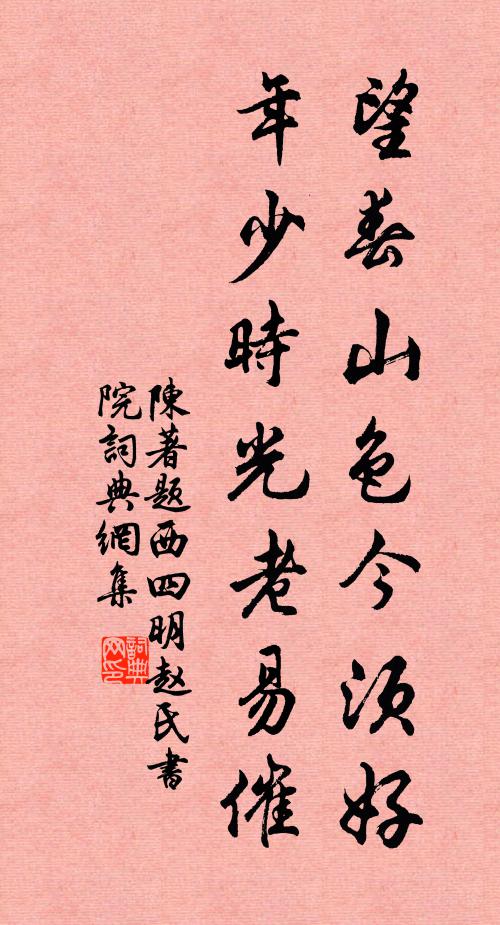 望春山色今須好
年少時光老易催
陳著題西四明赵氏書
院詞典網集
詞典网印